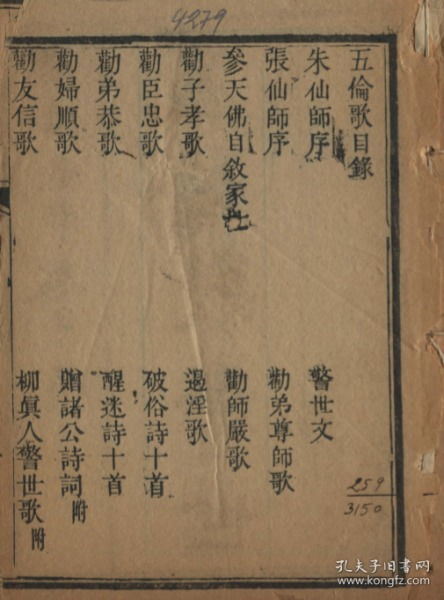 4279
五倫歌目錄
朱仙師序
警世文
張仙師序
勸弟尊師歌
參天佛自敘家世
勸師嚴歌
勸子孝歌
遏淫歌
勸臣忠歌
破俗詩十首
勸弟恭歌
醒迷詩十首
勸婦順歌
贈諸公詩詞附
勸友信歌
柳眞人警世歌附
259
3150
孔夫子旧书网
www.kongfz.com